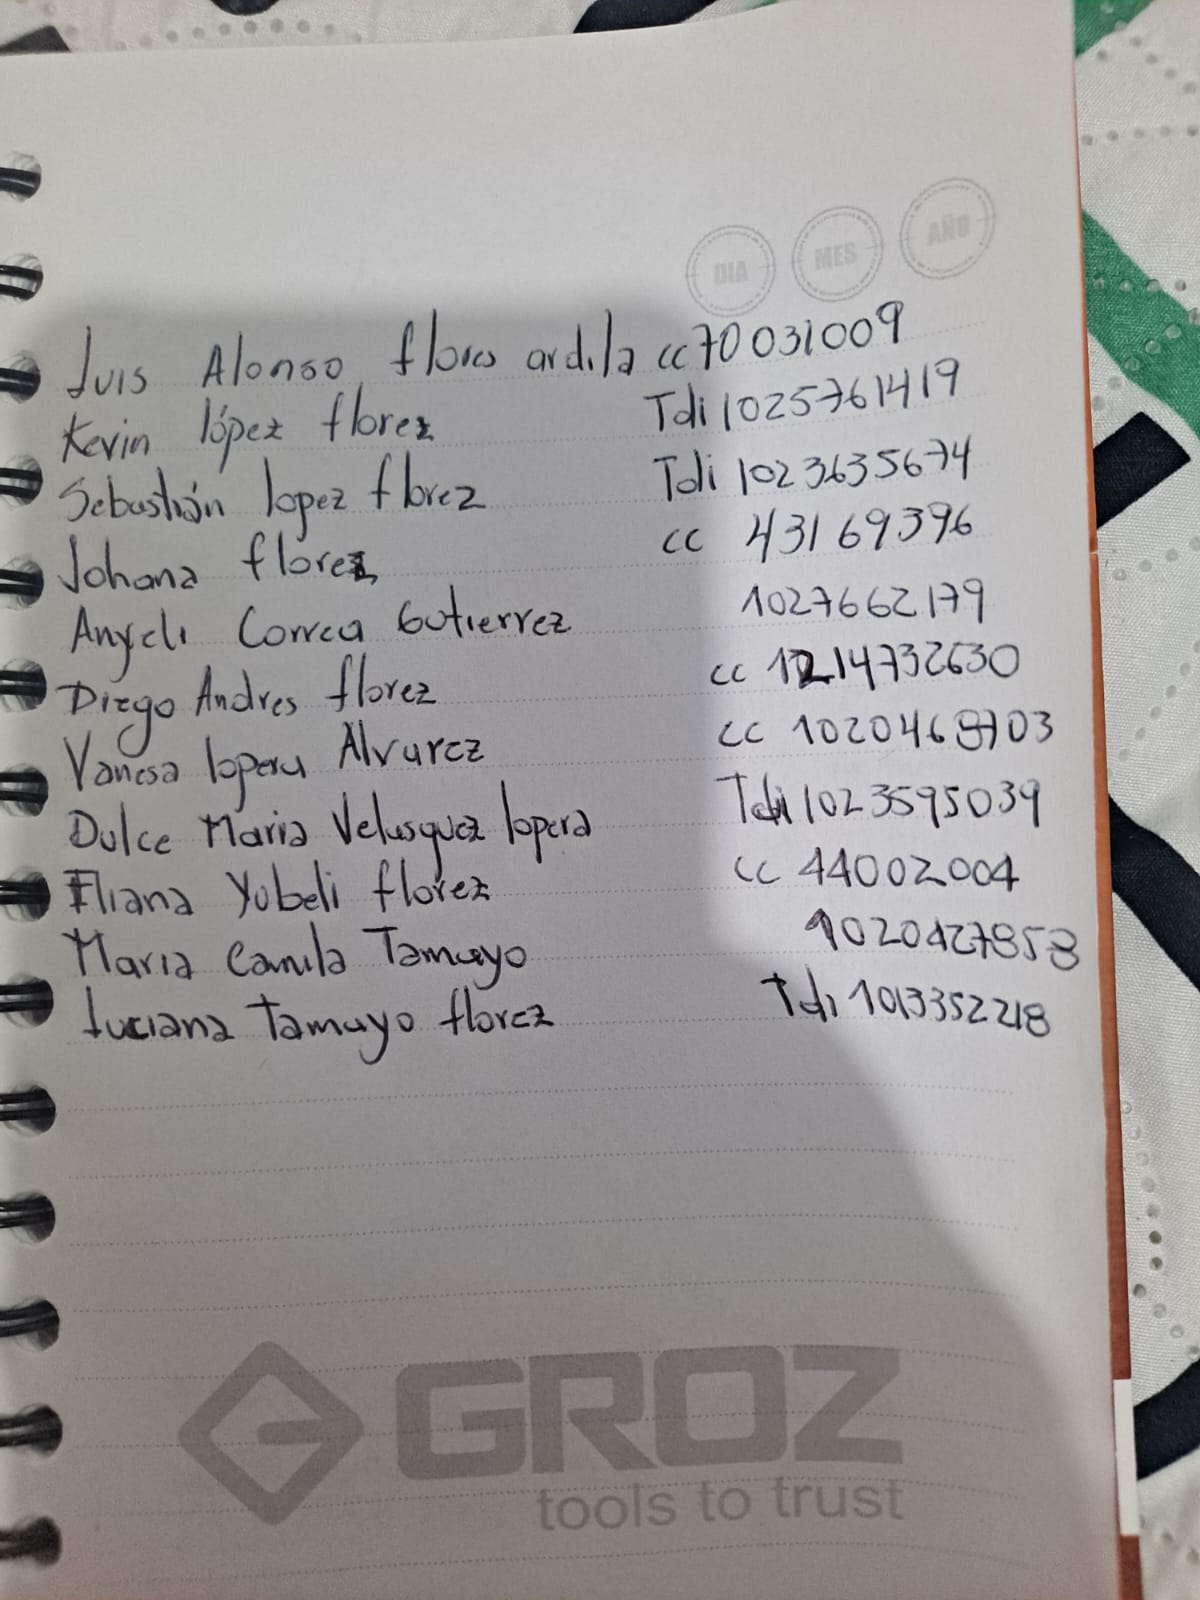 DIA MES AÑO
Luis Alonso flores ardila cc 70031009
Kevin lópez florez Tdi 1025761419
Sebastián lopez florez Tdi 1023635674
Johana florez cc 43169396
Anyeli Correa Gutierrez 1027662179
Diego Andres florez cc 1214732630
Vanesa lopera Alvarez cc 1020468703
Dulce Maria Velasquez lopera Tdi 1023595039
Eliana Yubeli florez cc 44002004
Maria Camila Tamayo 1020427858
Luciana Tamayo florez Tdi 1013352218
GROZ
tools to trust